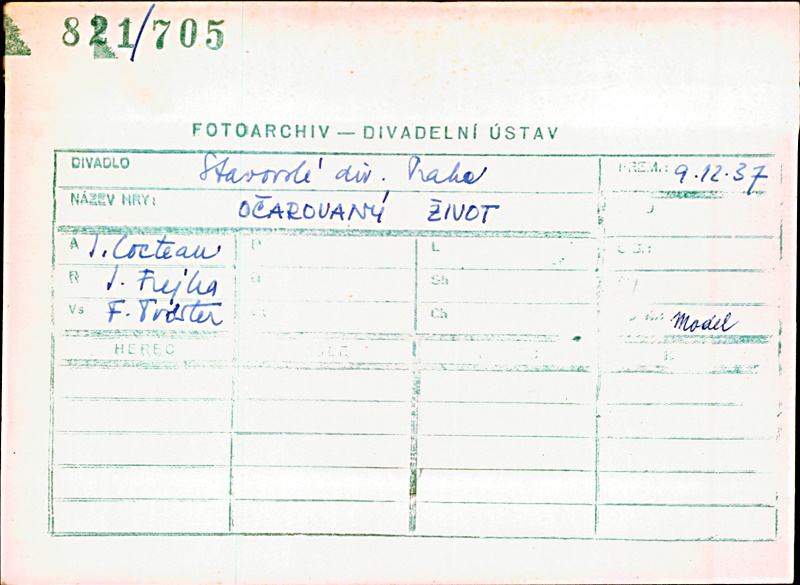 821/705
FOTOARCHIV — DIVADELNÍ ÚSTAV
DIVADLO Stavovské div. Praha PREM.: 9.12.37
NÁZEV HRY: OČAROVANÝ ŽIVOT
A J. Cocteau D L
R J. Frejka Sh
Vs F. Tröster Ch Model
HEREC